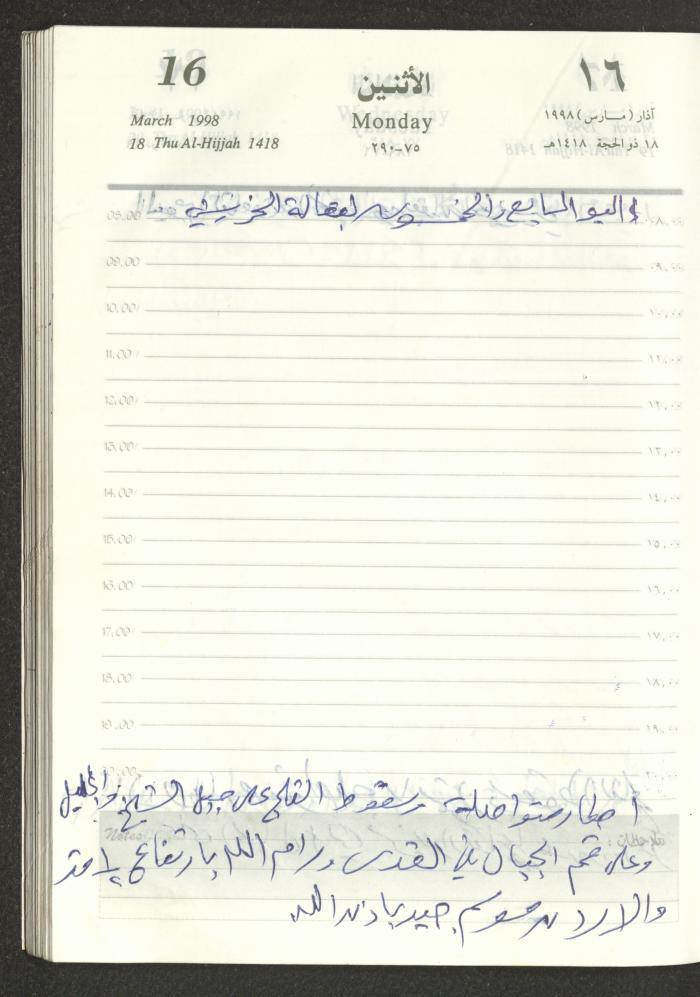 16 الأثنين ١٦
March 1998 Monday آذار (مارس) ١٩٩٨
18 Thu Al-Hijjah 1418 ٧٥-٢٩٠ ١٨ ذو الحجة ١٤١٨هـ
اليوم السابع والخمسون لبقالة
08.00 ٠٨,٠٠
09.00 ٠٩,٠٠
10.00 ١٠,٠٠
11.00 ١١,٠٠
12.00 ١٢,٠٠
13.00 ١٣,٠٠
14.00 ١٤,٠٠
15.00 ١٥,٠٠
16.00 ١٦,٠٠
17.00 ١٧,٠٠
18.00 ١٨,٠٠
19.00 ١٩,٠٠
20.00
امطار متواصلة وسقوط الثلج على جبل الشيخ والخليل
Notes
وعلى قمم الجبال في القدس ورام الله بارتفاع ½ متر
والاردن موسم جيد باذن الله